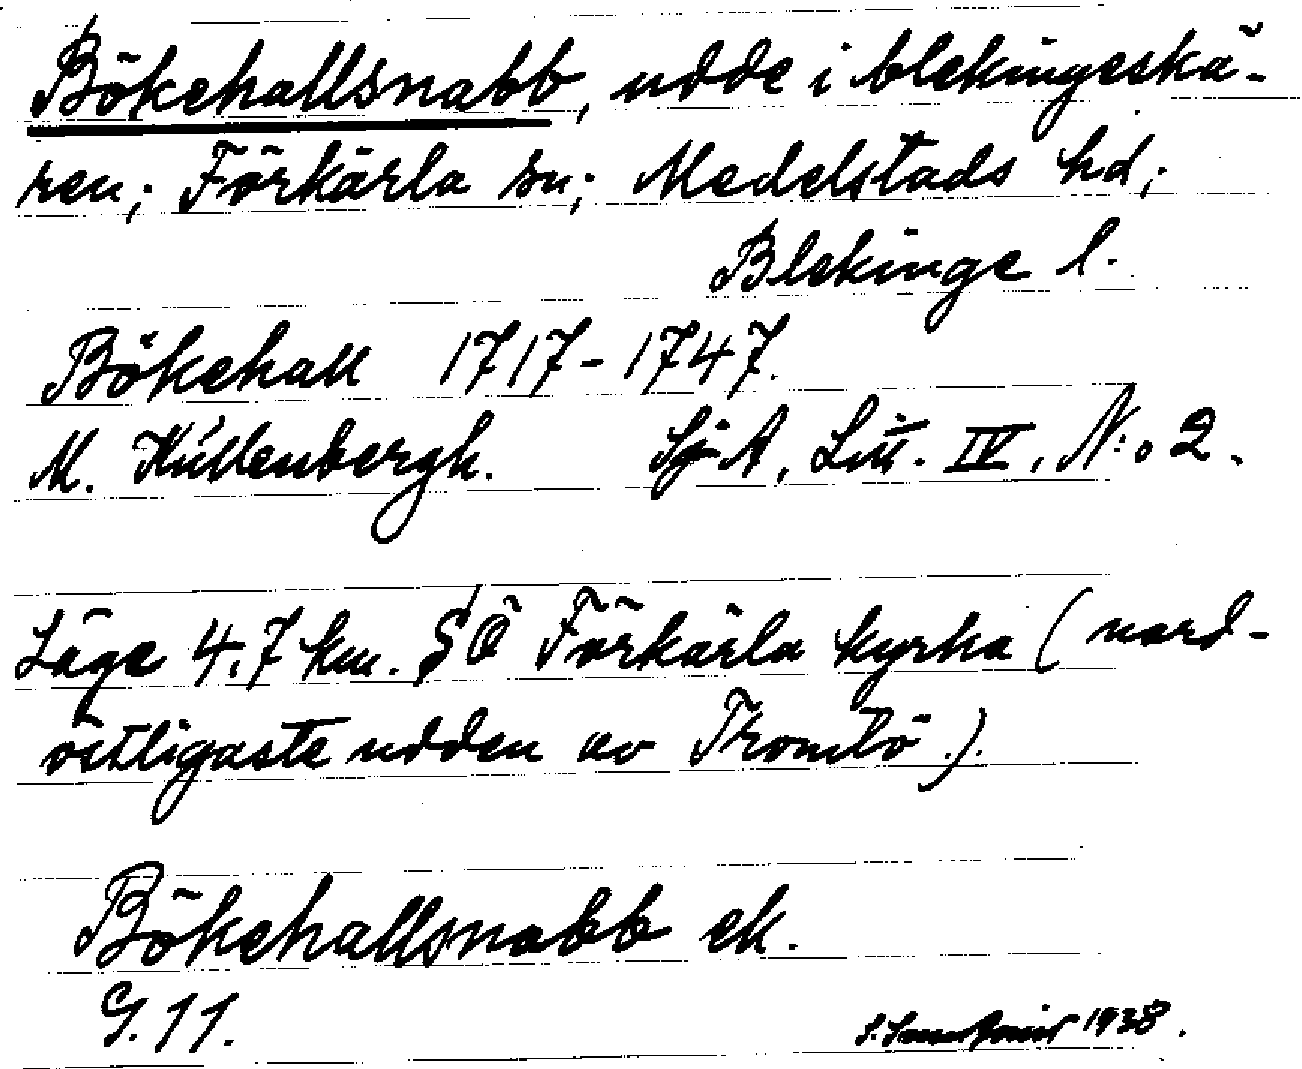 Bökehallsnabb, udde i blekingeskä-
ren; Förkärla sn; Medelstads hd;
Blekinge l.
Bökehall 1717-1747.
M. Küllenbergh. SjA, Litt. IV, N:o 2.
Läge 4,7 km. SÖ Förkärla kyrka (nord-
östligaste udden av Tromtö.).
Bökehallsnabb ek.
G. 11.
1938.